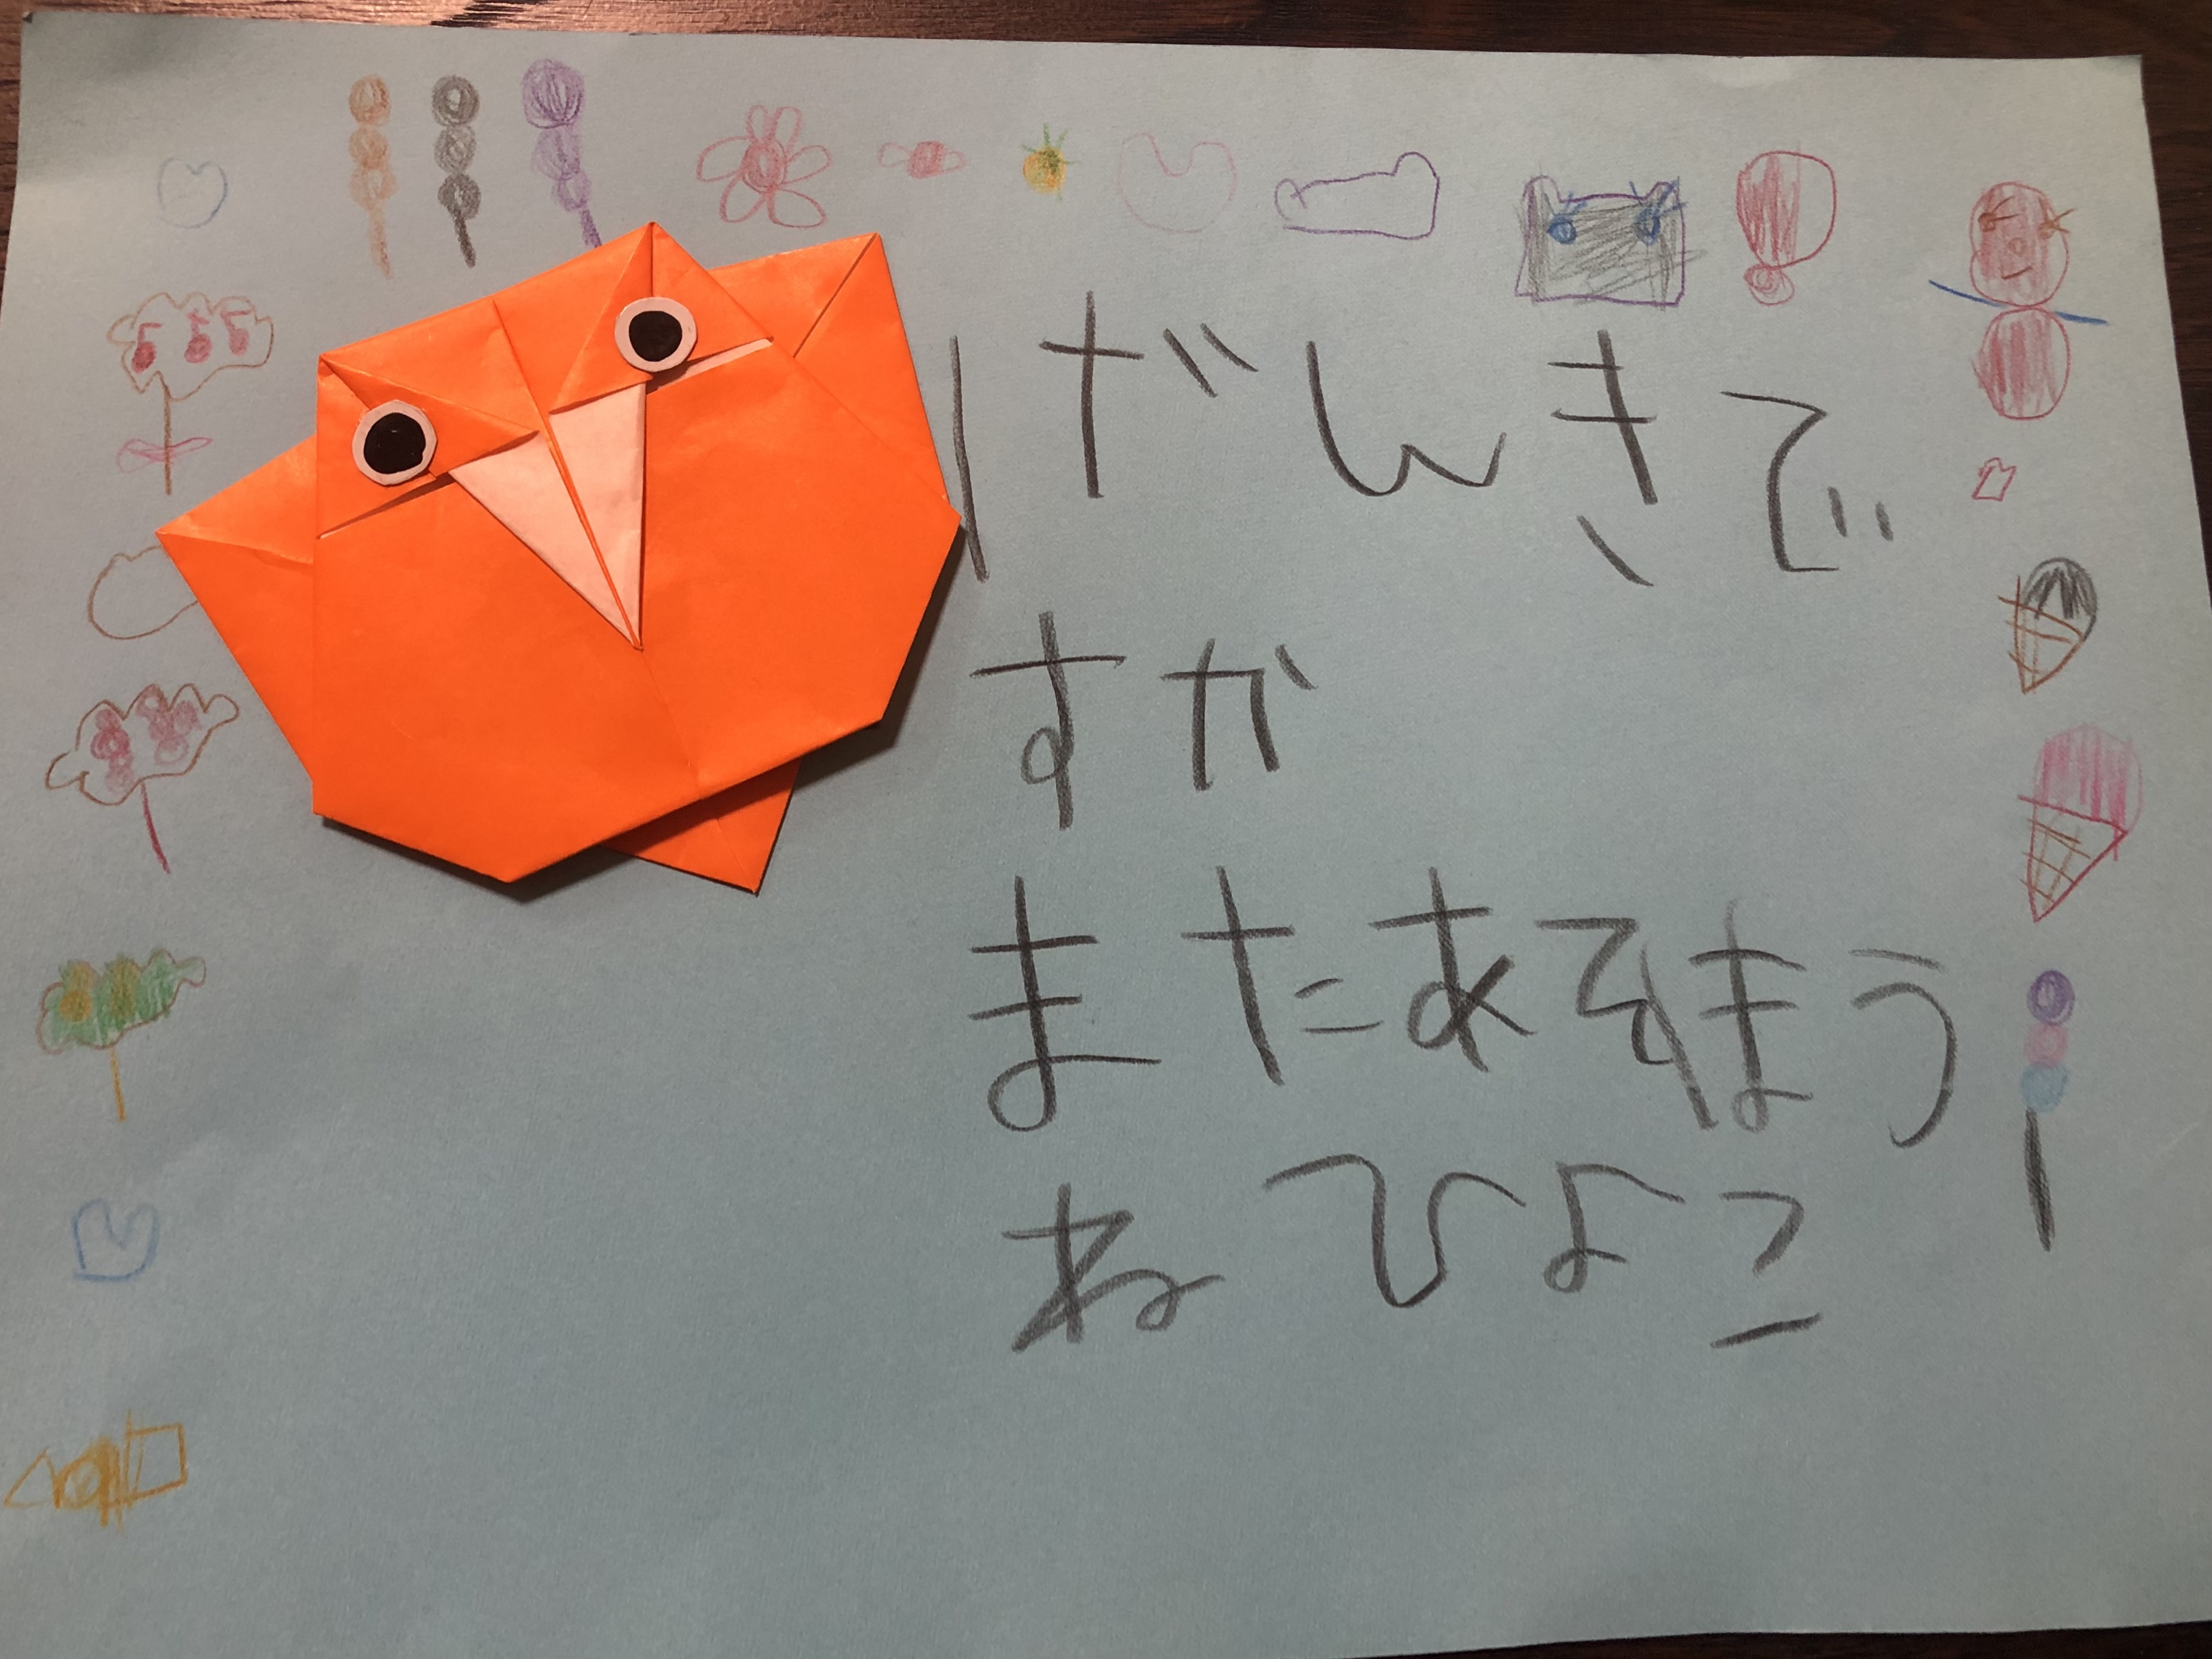 げんきで
すか
またあそほう
ねひよこ